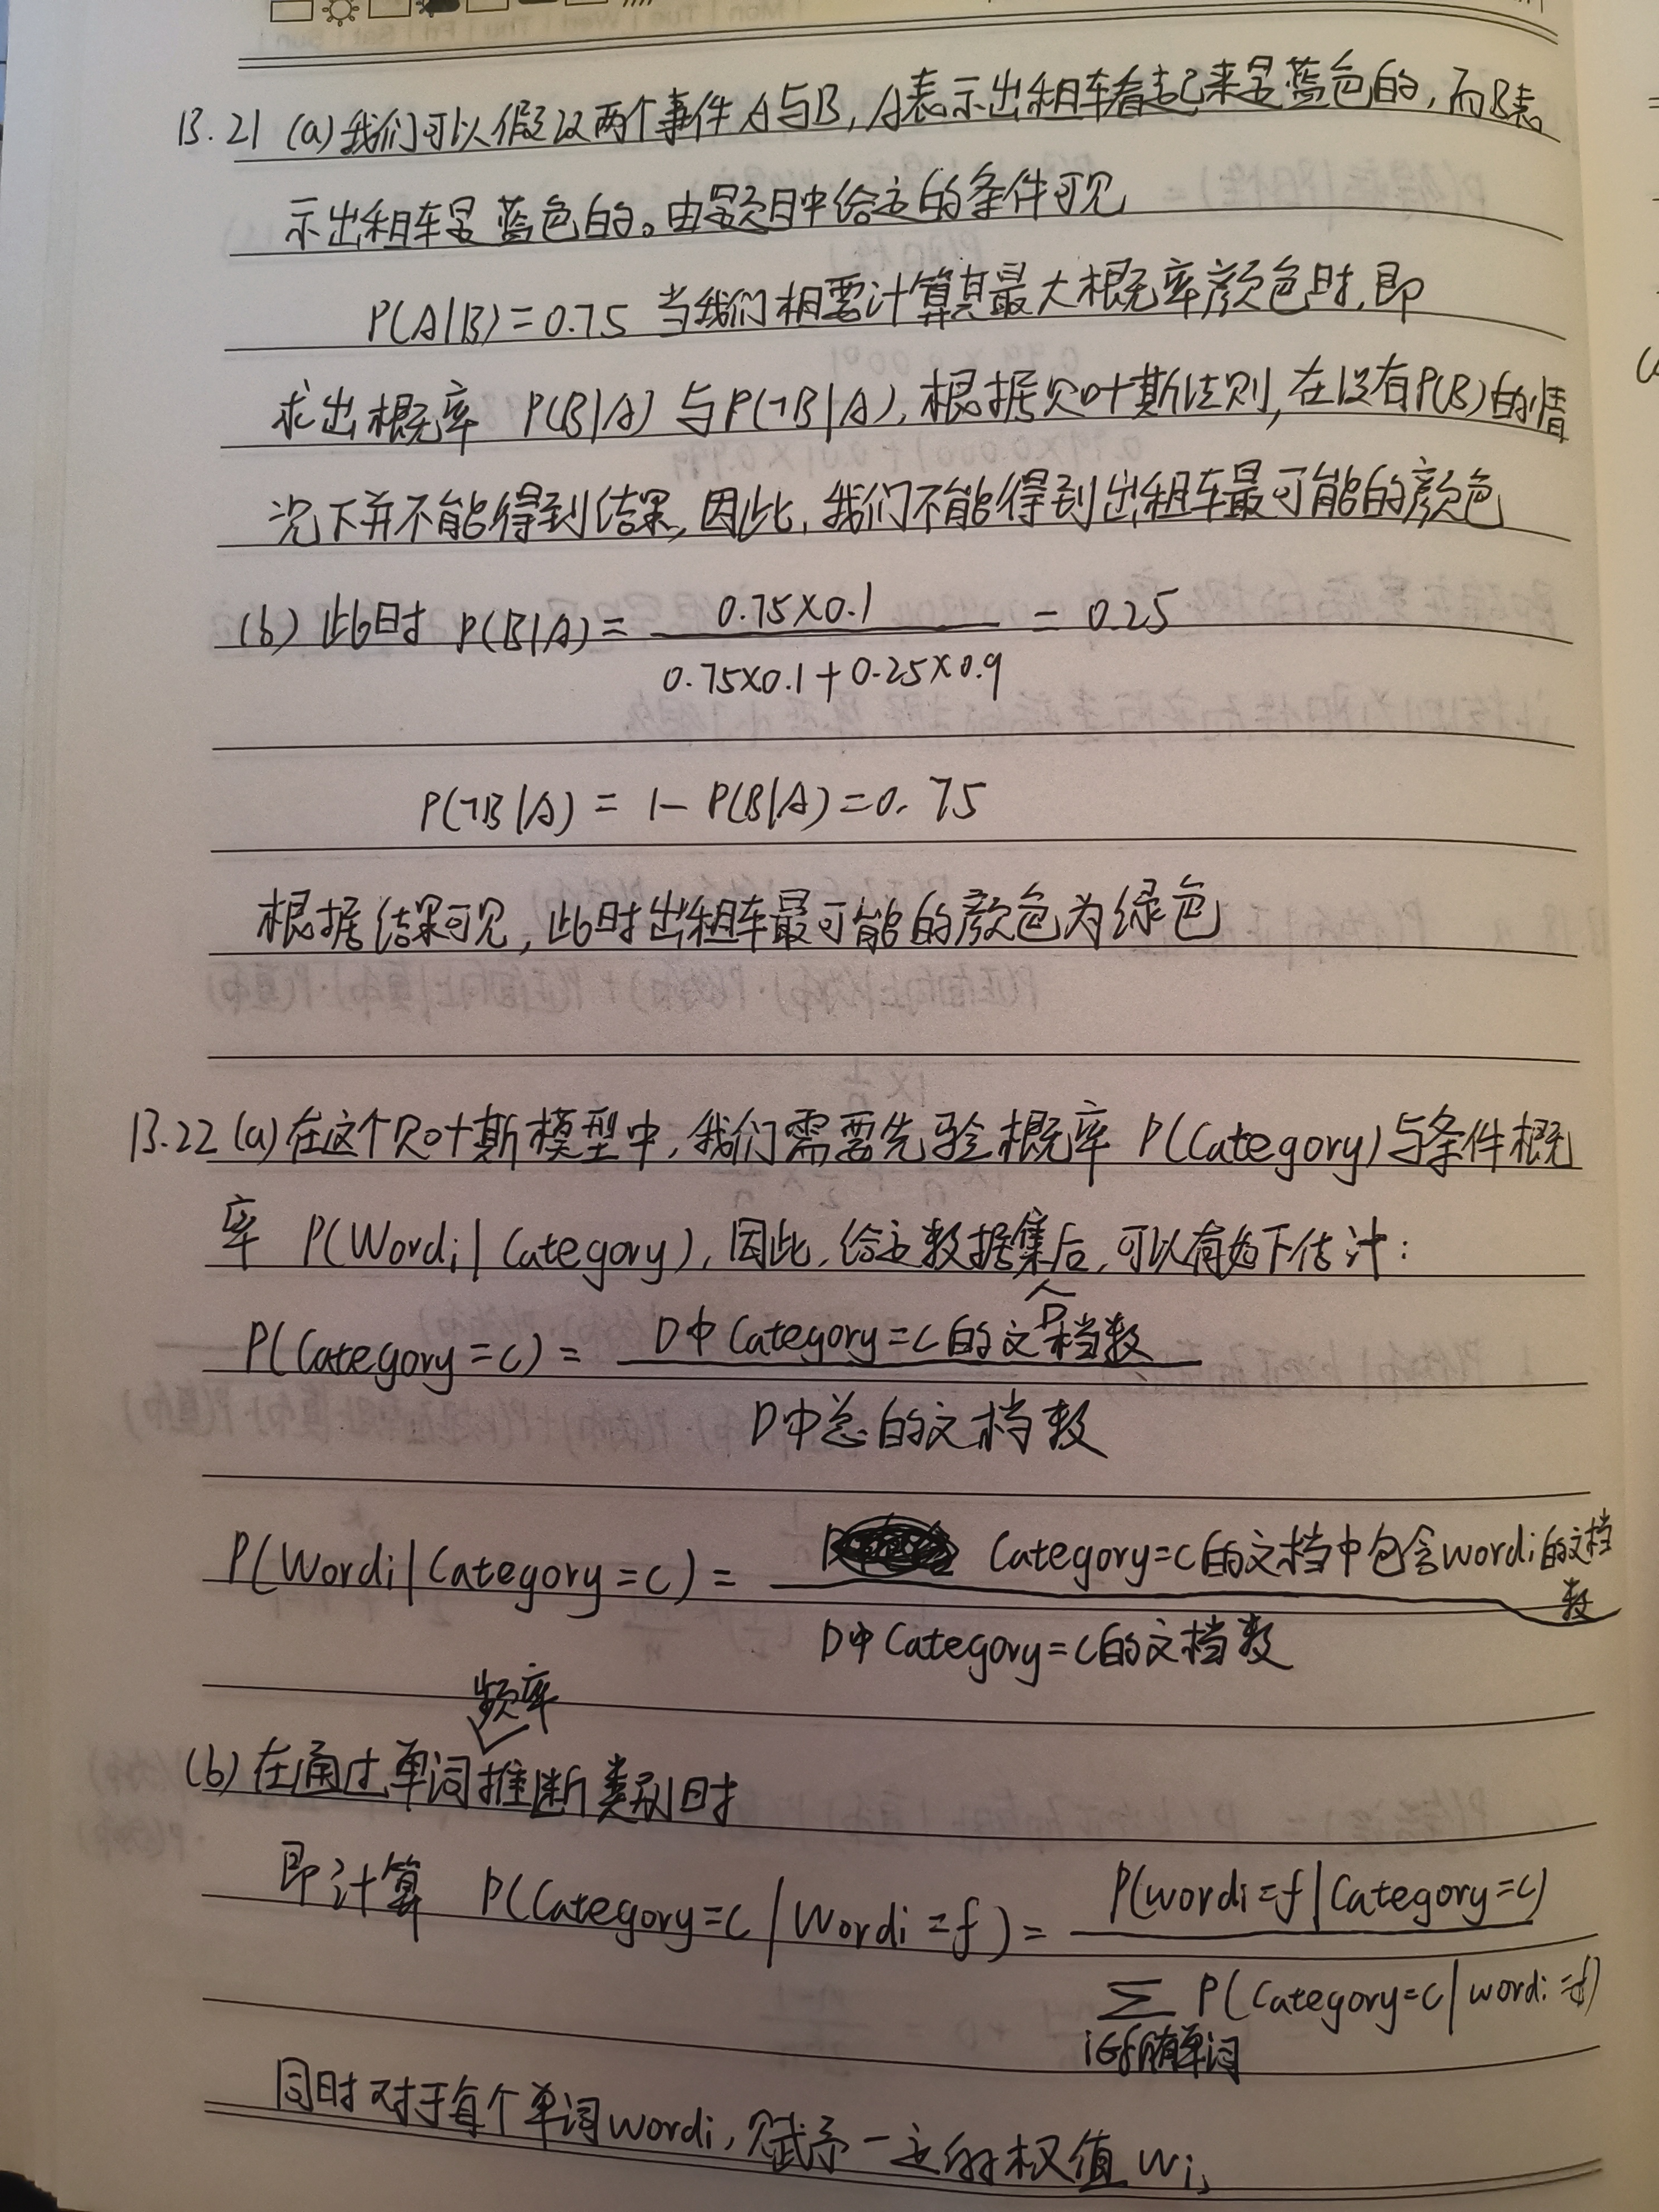 13.21 (a) 我们可以假设两个事件A与B,A表示出租车看起来是蓝色的,而B表
示出租车是蓝色的。由题目中给定的条件可见
P(A|B)=0.75 当我们想要计算其最大概率颜色时,即
求出概率 P(B|A) 与P(¬B|A),根据贝叶斯法则,在没有P(B)的情
况下并不能得到结果,因此,我们不能得到出租车最可能的颜色
(b) 此时 P(B|A) = 0.75×0.1 = 0.25
0.75×0.1+0.25×0.9
P(¬B|A) = 1-P(B|A)=0.75
根据结果可见,此时出租车最可能的颜色为绿色
13.22 (a)在这个贝叶斯模型中,我们需要先验概率 P(Category)与条件概
率 P(Wordi|Category),因此,给定数据集后,可以有如下估计:
D
P(Category=c) = D中Category=c的文档数
D中总的文档数
P(Wordi|Category=c) = Category=c的文档中包含wordi的文档
数
D中Category=c的文档数
频率
(b)在通过单词推断类别时
即计算 P(Category=c|Wordi=f) = P(wordi=f|Category=c)
∑ P(Category=c|wordi=f)
i∈所有单词
同时对于每个单词wordi,赋予一定的权值wi,